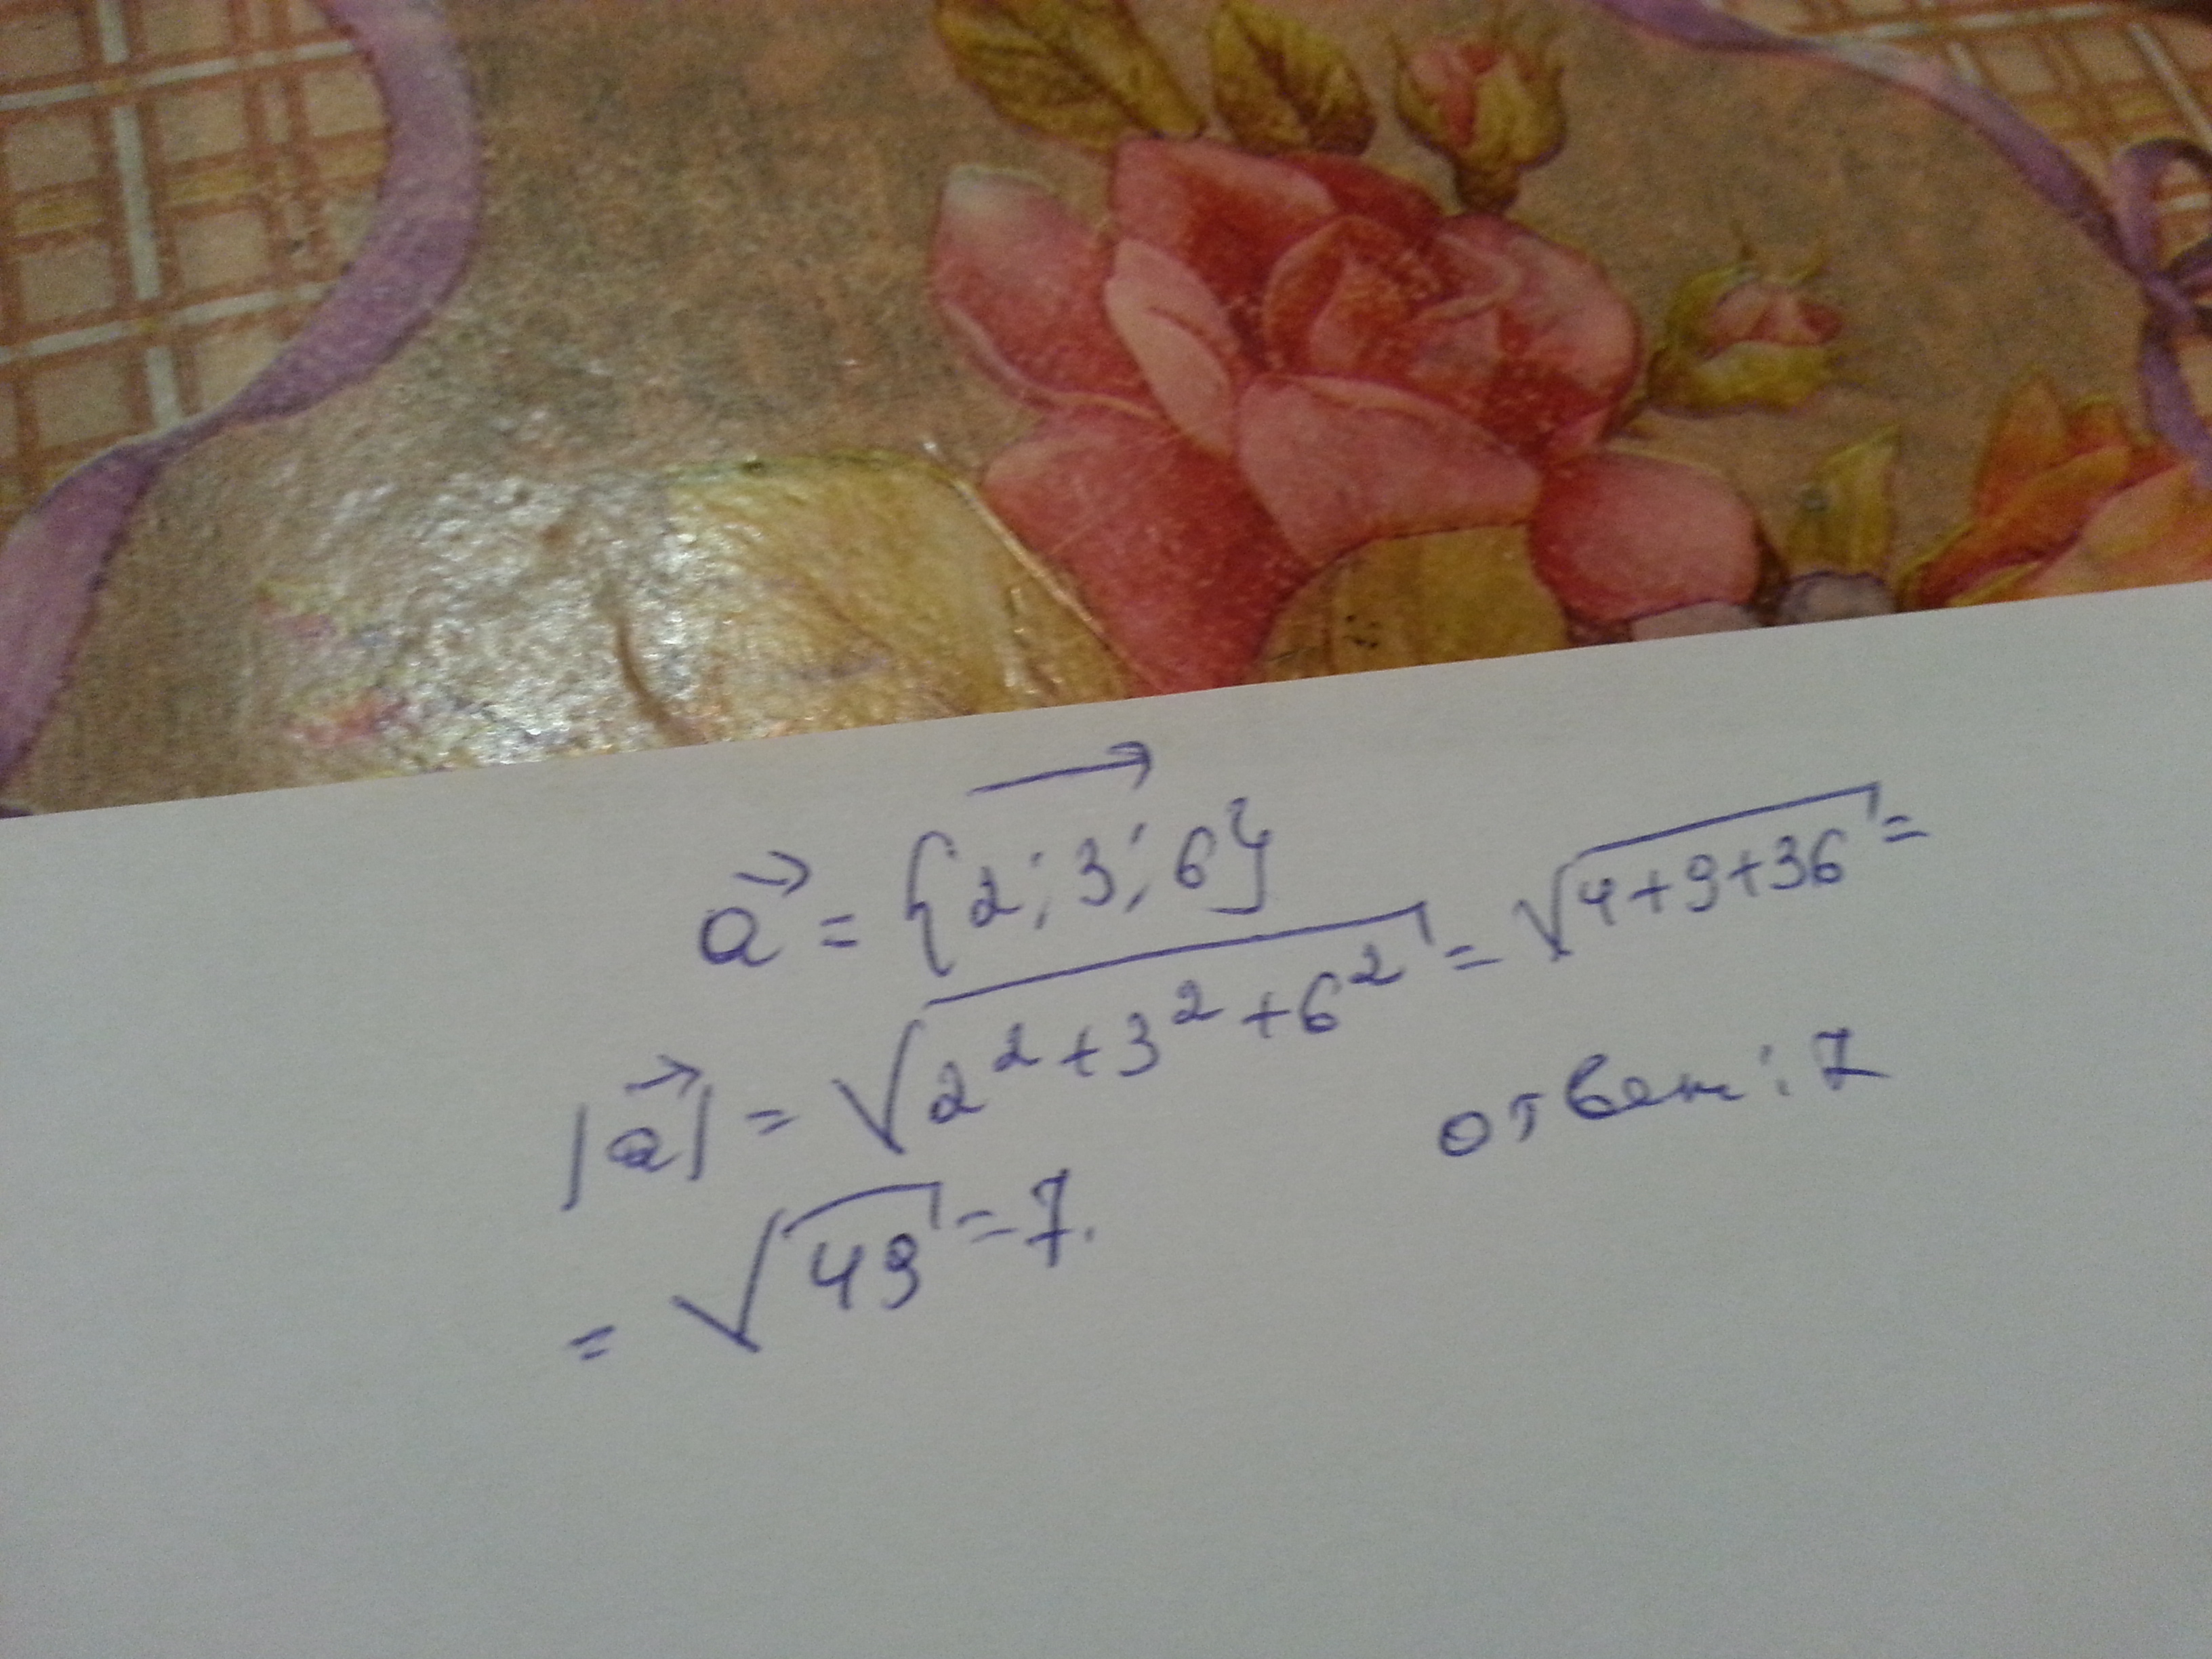 a⃗ = {2; 3; 6}
|a⃗| = √(2² + 3² + 6²) = √(4 + 9 + 36) =
= √49 = 7.
ответ: 7